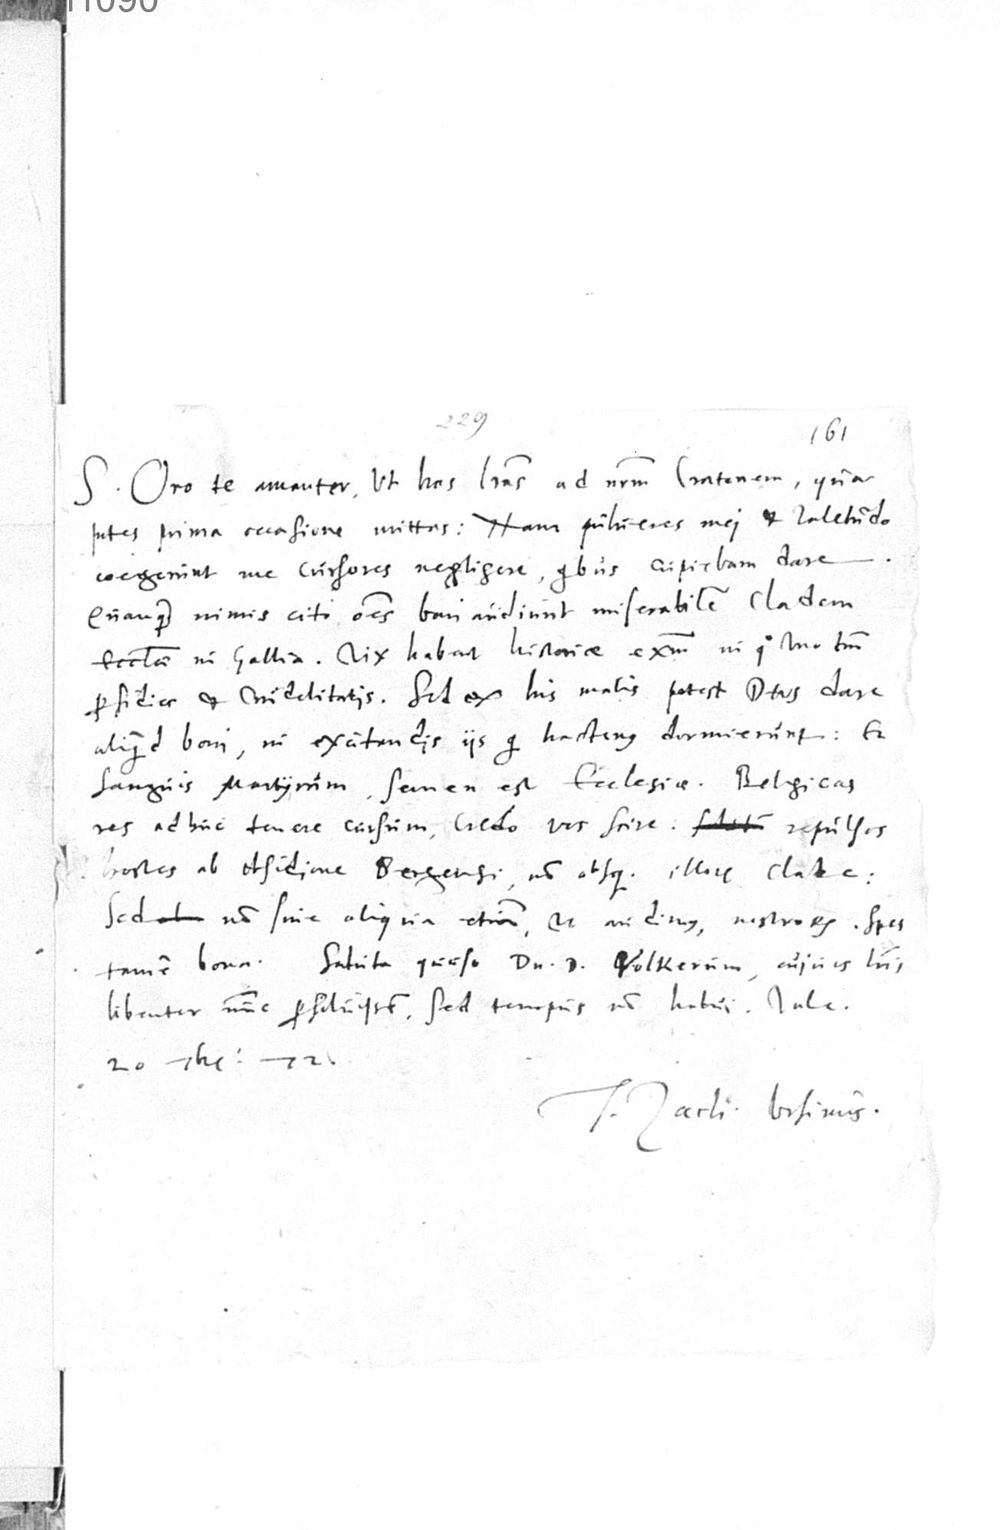 11090
229
161
S. Oro te amanter, ut has lras ad nrm Cratonem, qua
potes prima occasione mittas: Nam pulueres mei & valetudo
coegerunt me cursores negligere, qbus cupiebam dare.
Quanq nimis cito oes boni audiunt miserabile Cladem
Eccl͞ae in Gallia. Vix habent historiae exm in q tantum
pfidiae & crudelitatis. Sed ex his malis potest Deus dare
aliqd boni, in excitandis iis q hactenus dormierunt: Et
sanguis Martyrum, semen est Ecclesiae. Belgicas
res adhuc tenere cursum, credo vos scire: repulsos
hostes ab obsidione Bergensi, nō absq. illorum clade:
Sed nō sine aliqua etiā, ut audimus, nostrorum. Spes
tamē bona. Saluta quaeso Dn. D. Volkerum, cujus lris
libenter nunc , sed tempus nō habui. Vale.
20 7br: 72.
T. Zach. Vrsinus.